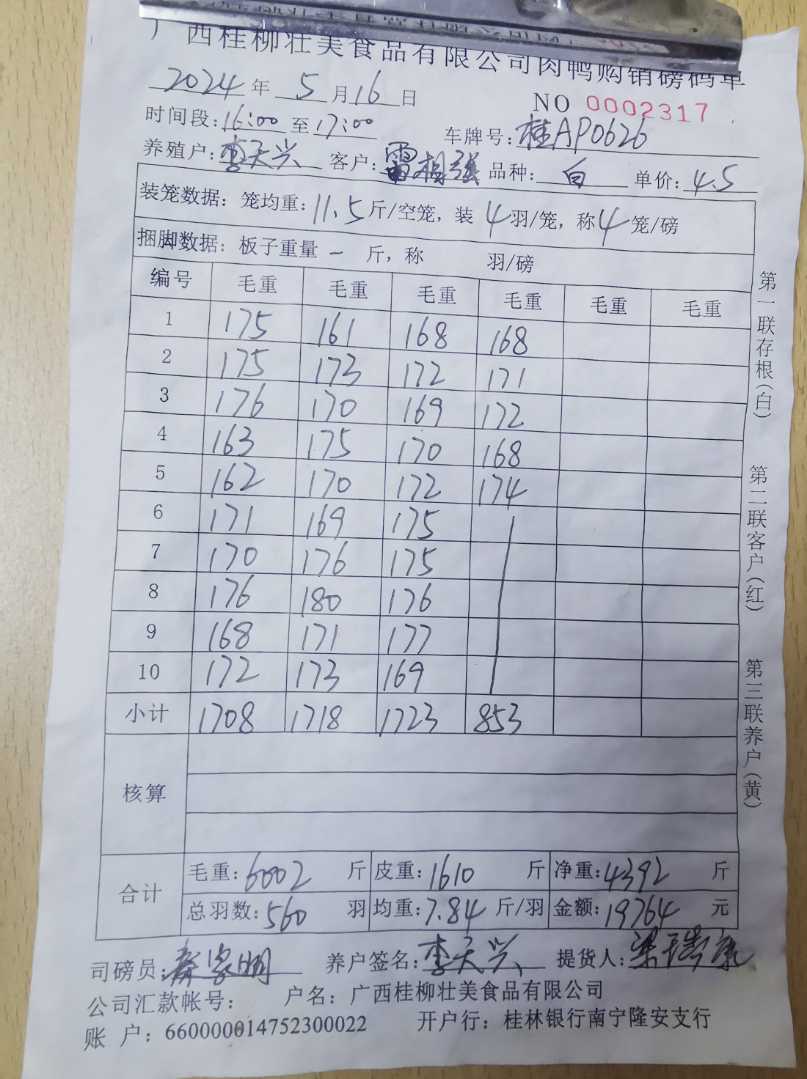 广西桂柳壮美食品有限公司肉鸭购销磅码单
2024年 5 月16日 NO 0002317
时间段:16:00至17:00 车牌号:桂AP0626
养殖户:李天兴 客户:雷相强 品种:白 单价:4.5
装笼数据:笼均重:11.5斤/空笼,装 4羽/笼,称4笼/磅
捆脚数据:板子重量 一 斤,称 羽/磅
编号 毛重 毛重 毛重 毛重 毛重 毛重
1 175 161 168 168
2 175 173 172 171
3 176 170 169 172
4 163 175 170 168
5 162 170 172 174
6 171 169 175
7 170 176 175
8 176 180 176
9 168 171 177
10 172 173 169
小计 1708 1718 1723 853
核算
合计 毛重:6002 斤 皮重:1610 斤 净重:4392 斤
总羽数:560 羽 均重:7.84 斤/羽 金额:19764 元
司磅员: 养户签名:李天兴 提货人:
公司汇款帐号: 户名:广西桂柳壮美食品有限公司
账 户:660000014752300022 开户行:桂林银行南宁隆安支行
第一联存根(白)
第二联客户(红)
第三联养户(黄)